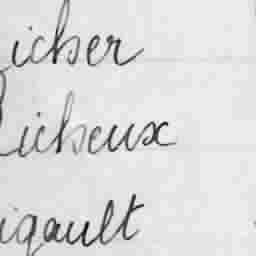 icher
Richeux
igault